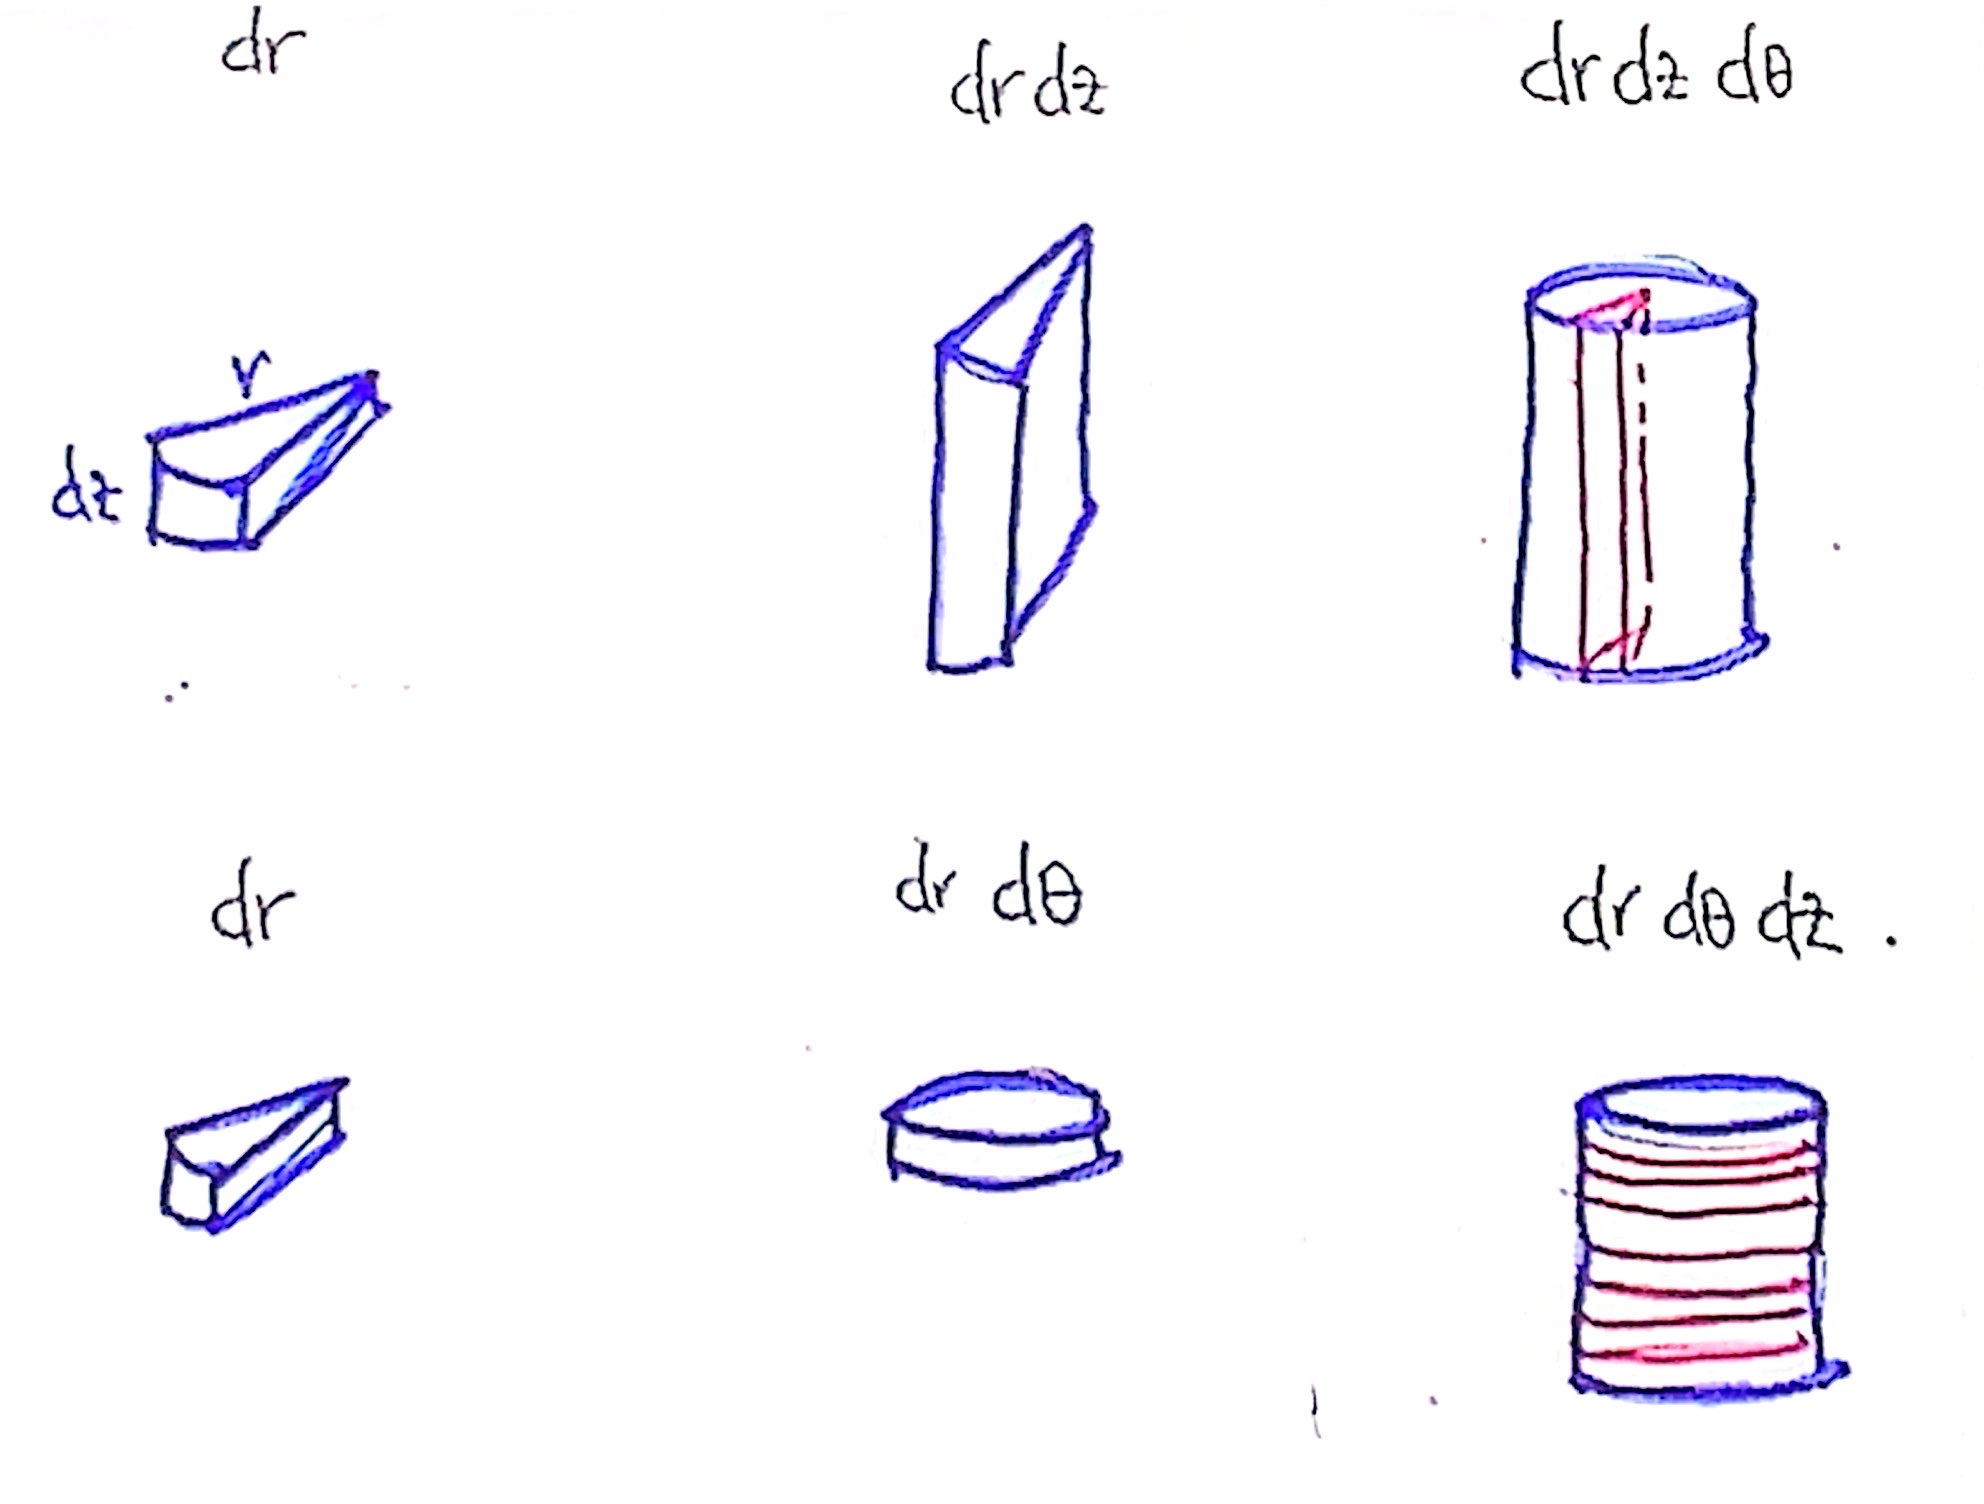 dr
dr dz
dr dz dθ
r
dz
dr
dr dθ
dr dθ dz .